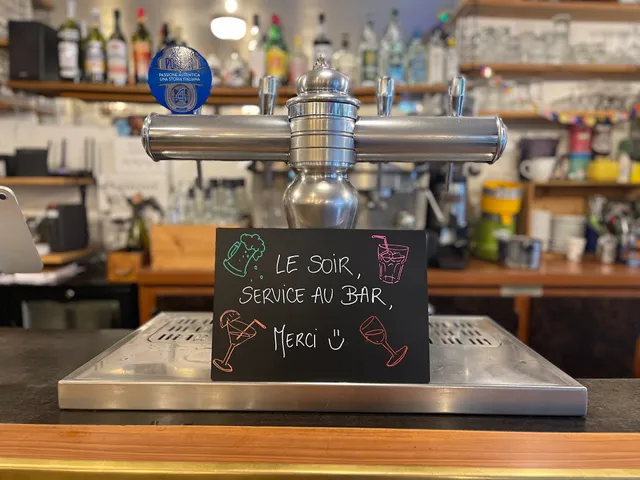 PASSIONE AUTENTICA
UNA STORIA ITALIANA
LE SOIR,
SERVICE AU BAR,
MERCI :)